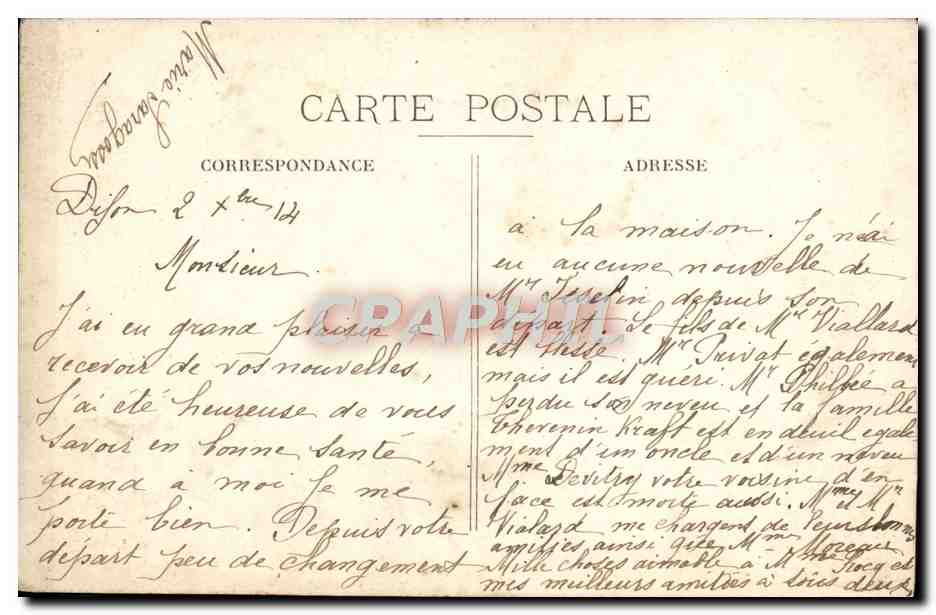 Marie Saragosse
CARTE POSTALE
CORRESPONDANCE
ADRESSE
Dijon 2 Xbre 14
Monsieur
J'ai eu grand plaisir à
recevoir de vos nouvelles,
j'ai été heureuse de vous
savoir en bonne santé,
quand à moi je me
porte bien. Depuis votre
départ peu de changement
à la maison. Je n'ai
eu aucune nouvelle de
Mr Isselin depuis son
départ. Le fils de Mr Viallard
est blessé. Mr Privat également
mais il est guéri. Mr Philbée a
perdu son neveu et la famille
Thevenin Kraft est en deuil égale
ment d'un oncle et d'un neveu
Mme Devitry votre voisine d'en
face est morte aussi. Mme et Mr
Vialard me chargent de leurs bonnes
amitiés ainsi que Mme Moreau
Mille choses aimable à Mme Rocq et
mes meilleurs amitiés à tous deux
CPAPHIL